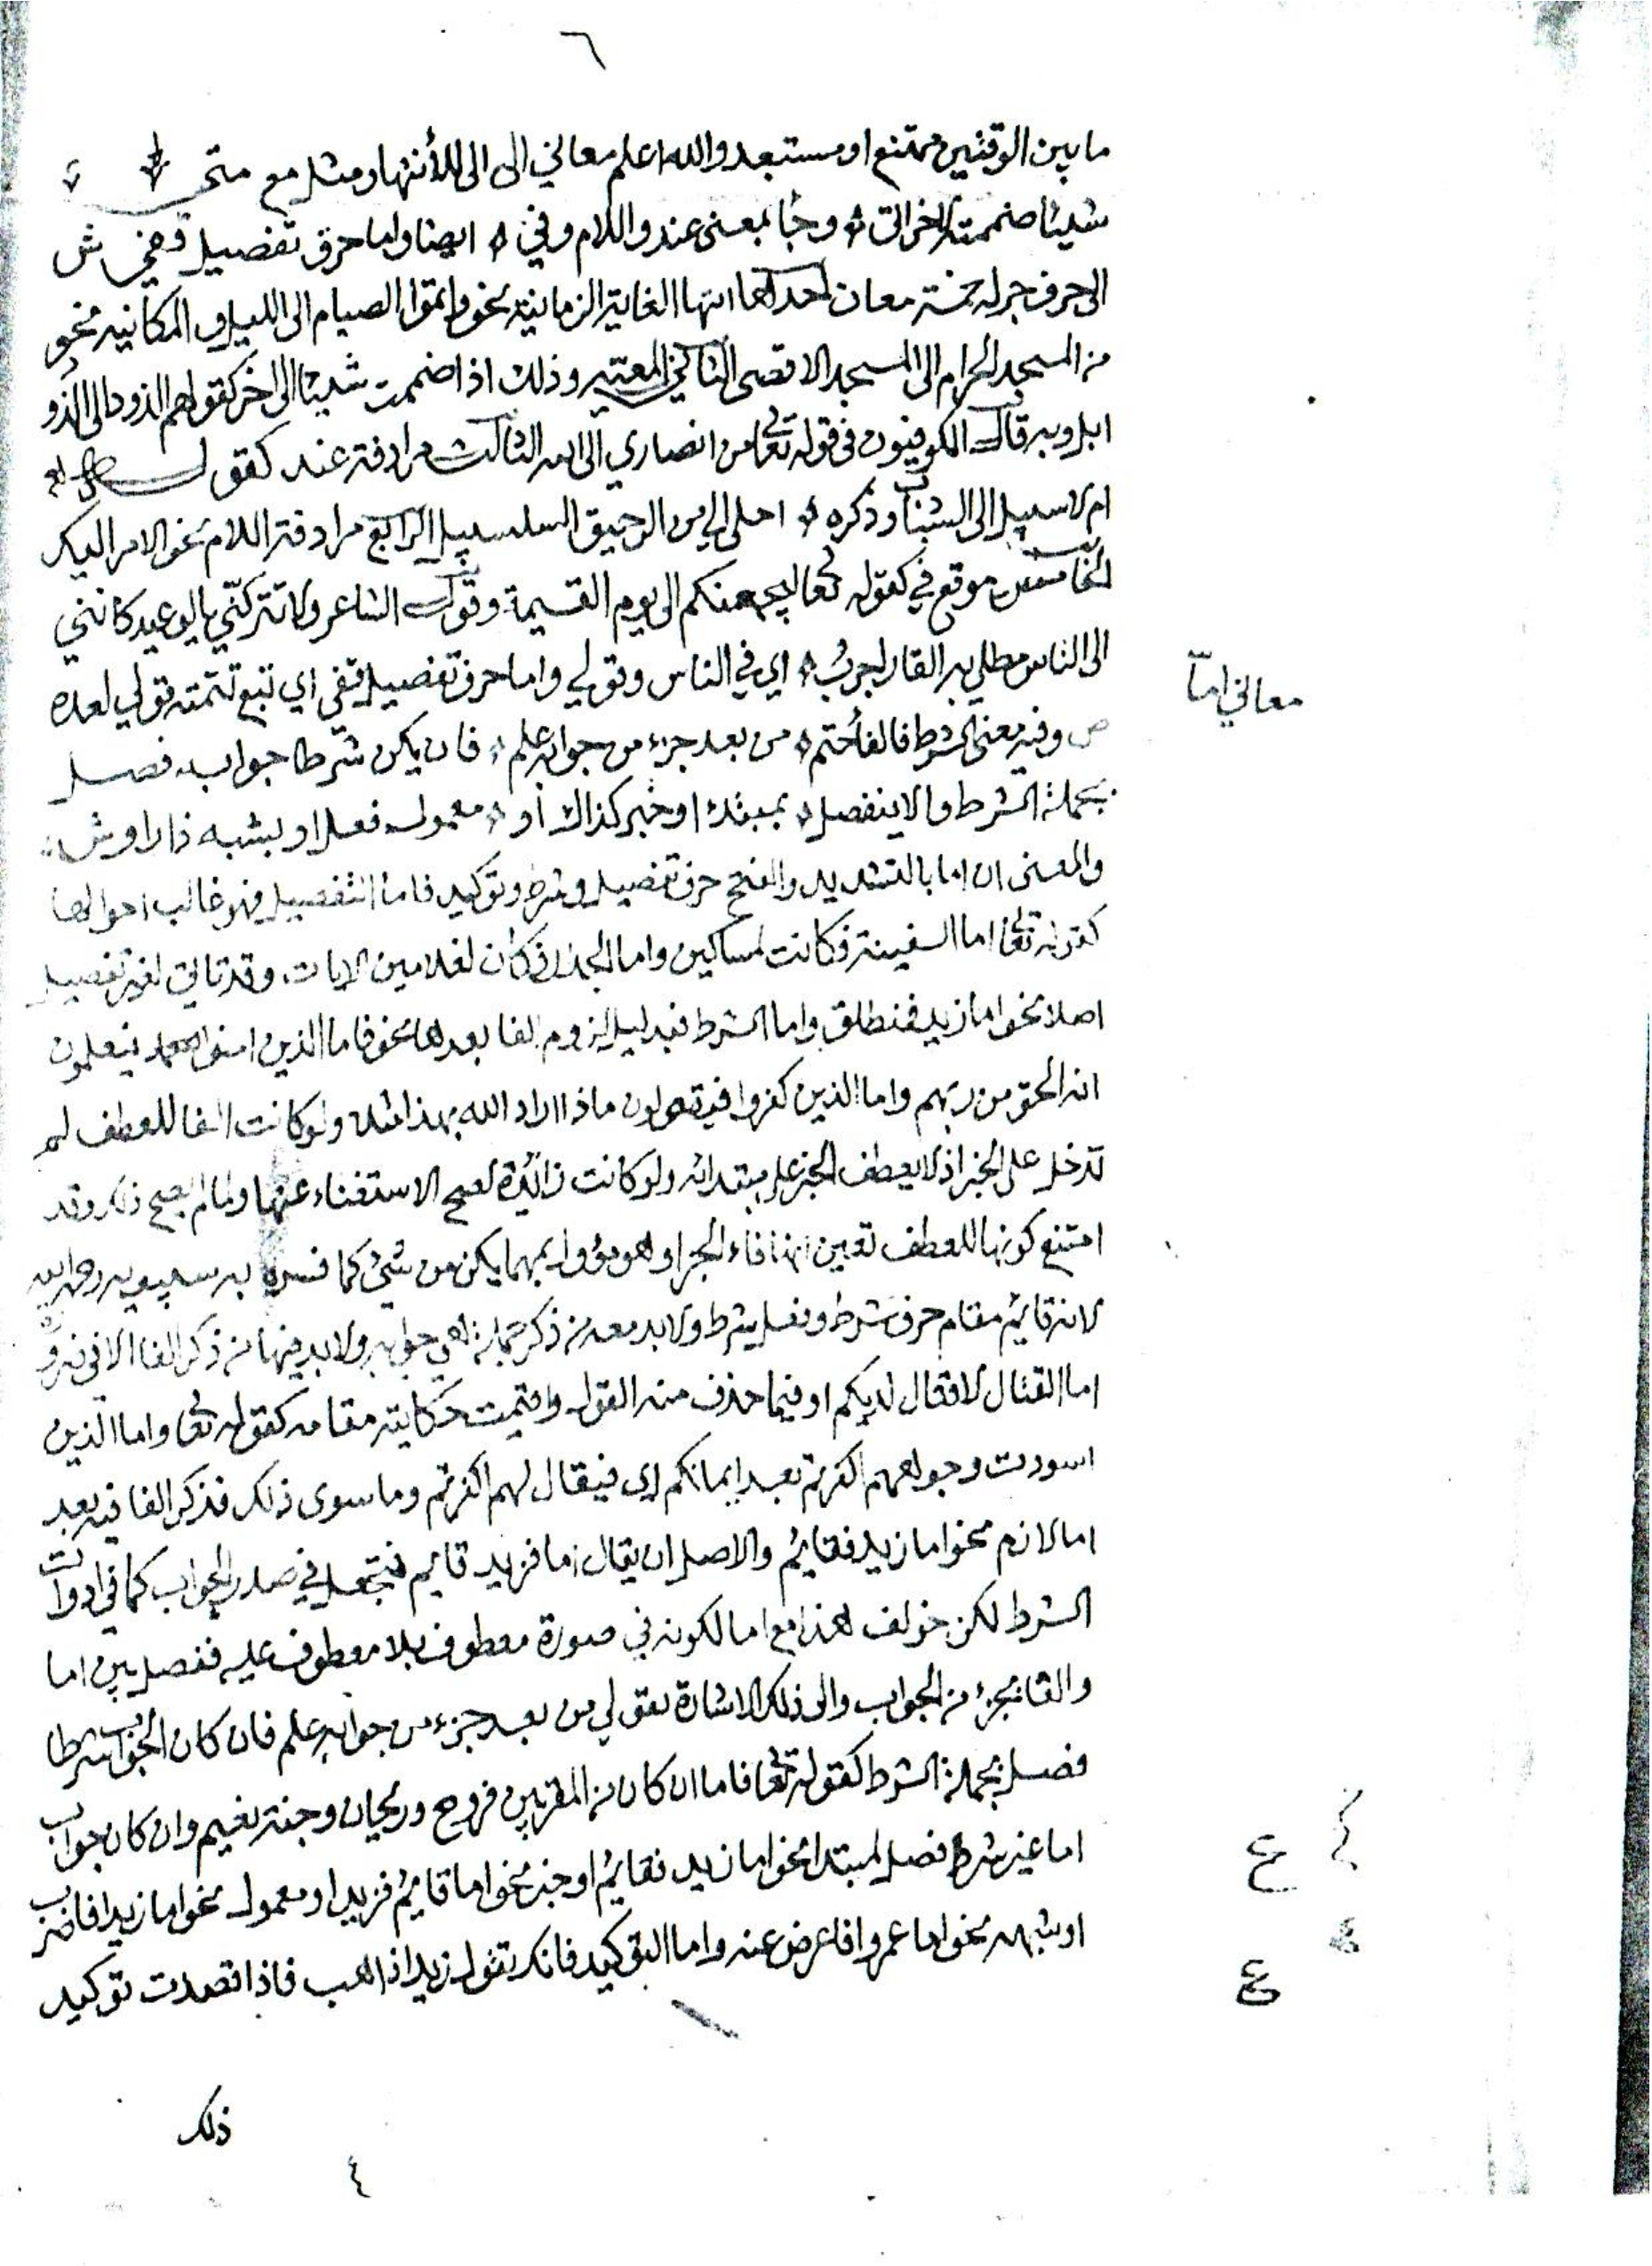 ٦
ما بين الوقتين ممتنع او مستبعد والله اعلم معاني الى الى للأنتها ومثل مع متى
شيئا ضممته لاخراتى وجا بمعنى عند واللام وفي ايضا واما حرف تفصيل قفي ش
الى حرف جر له خمسة معان احدها انتها الغاية الزمانية نحو واتموا الصيام الى الليل والمكانيه نحو
من المسجد الحرام الى المسجد الاقصى الثاني المعيه وذلك اذا ضممت شيئا الى اخر كقولهم الذود الى الذود
ابل وبه قال الكوفيون في قوله تعا من انصاري الى الله الثالث مرادفة عند كقول
ام لا سبيل الى الشباب وذكره احلى الي من الرحيق السلسبيل الرابع مرادفة اللام نحو الامر اليك
الخامس موقع في كقوله تعا ليجمعنكم الى يوم القيمة وقول الشاعر ولا تتركنّي بالوعيد كانني
الى الناس مطلي به القار اجربُ اي في الناس وقولي واما حرف تفصيل قفي اي تتبع تتمته قولي بعده
معاني امّا
ص وفيه معنى الشرط فالفا حتم من بعد جزء من جوابه علم فان يكن شرطا جوابه فصل
بجملة الشرط والا ينفصل بمبتدا او خبر كذاك أو معمول فعل او بشبه ذا راو ش
والمعنى ان اما بالتشديد والفتح حرف تفصيل وشرط وتوكيد فاما التفصيل فهو غالب احوالها
كقوله تعا اما السفينة فكانت لمساكين واما الجدار فكان لغلامين الايات وقد تاتي لغير تفصيل
اصلا نحو اما زيد فمنطلق واما الشرط فبدليل لزوم الفا بعدها نحو فاما الذين امنوا فيعلمون
انه الحق من ربهم واما الذين كفروا فيقولون ماذا اراد الله بهذا مثلا ولو كانت الفا للعطف لم
تدخل على الخبر اذ لا يعطف الخبر على مبتدائه ولو كانت زائدة لصح الاستغناء عنها ولما لم يصح ذلك وقد
امتنع كونها للعطف تعين انها فاء الجزا وهو مؤول بمهما يكن من شئ كما فسره به سيبويه رحمه الله
لانه قايم مقام حرف شرط وفعل شرط ولا بد معه من ذكر جملة هي جوابه ولا بد فيها من ذكر الفا الا في ضرورة
اما القتال لا قتال لديكم او فيما حذف منه القول واقيمت حكايته مقامه كقوله تعا واما الذين
اسودت وجوههم اكفرتم بعد ايمانكم اي فيقال لهم اكفرتم وما سوى ذلك فذكر الفا فيه بعد
اما لازم نحو اما زيد فقائم والاصل ان يقال اما فزيد قايم فتجعل في صدر الجواب كما في ادوات
الشرط لكن خولف هذا مع اما لكونه في صورة معطوف بلا معطوف عليه ففصل بين اما
والفا بجزء من الجواب والى ذلك الاشارة بقولي من بعد جزء من جوابه علم فان كان الجواب شرطا
فصل بجملة الشرط كقوله تعا فاما ان كان من المقربين فروح وريحان وجنة نعيم وان كان جواب
اما غير شرط فصل بمبتدا نحو اما زيد فقائم او خبر نحو اما قائم فزيد او معمول نحو اما زيدا فاضرب
او شبهه نحو اما عمروا فاعرض عنه واما التوكيد فانك تقول زيد ذاهب فاذا قصدت توكيد
ذلك
٤